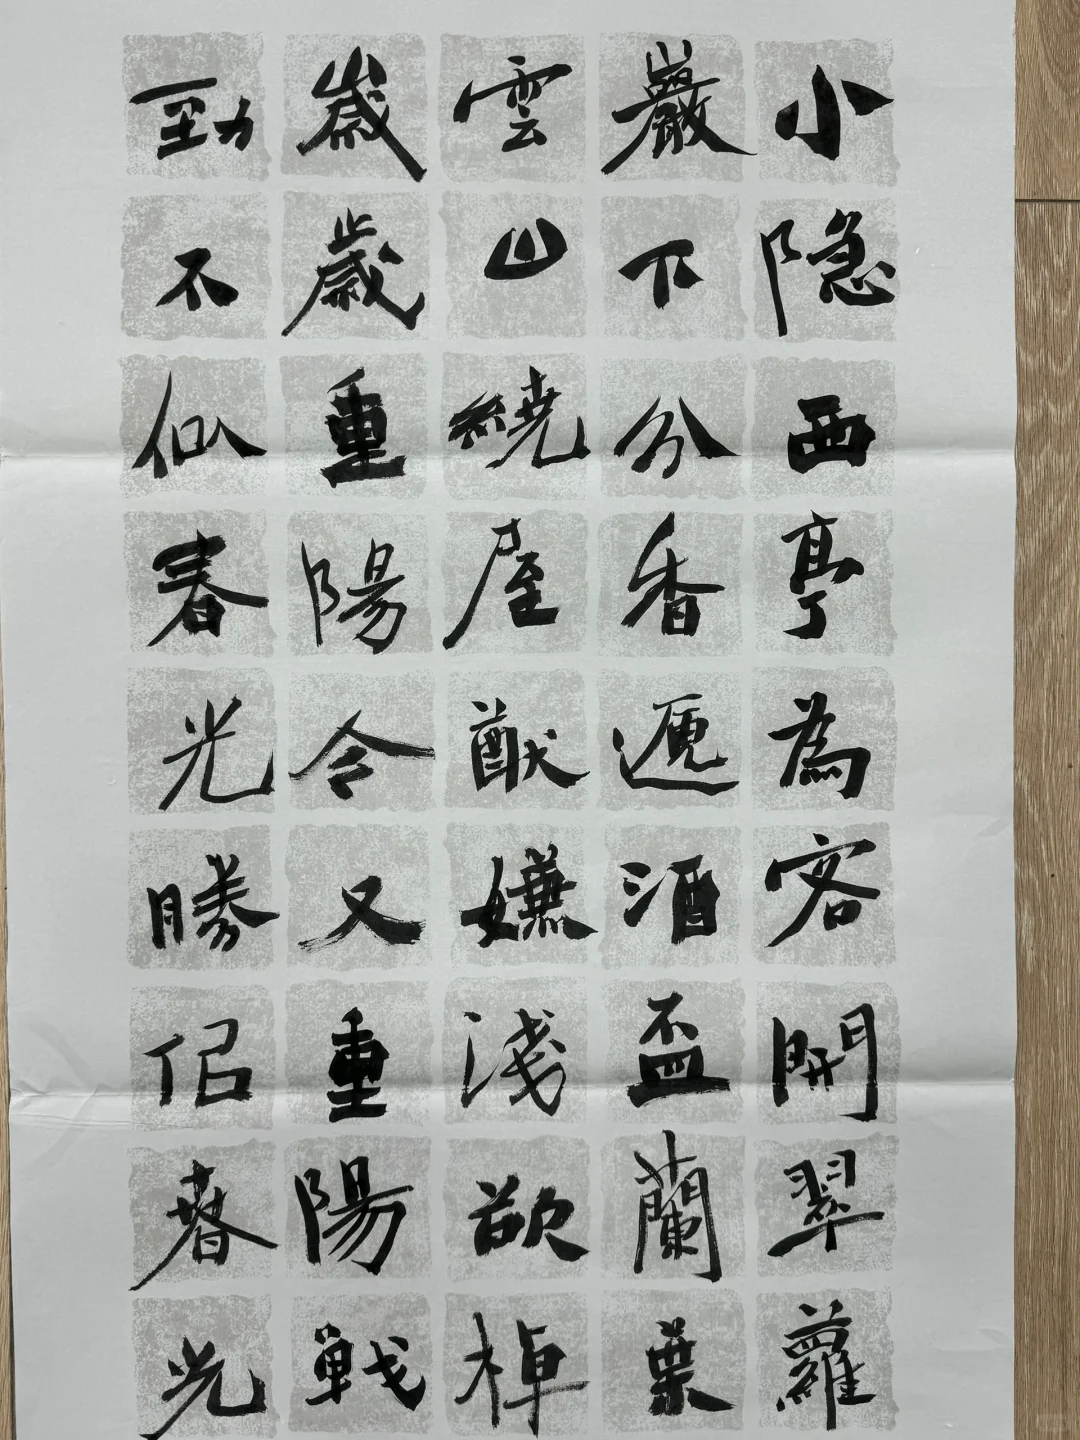 小隐西亭為客開翠蘿
巖下分香遞酒盃蘭葉
雲山繞屋猷嫌淺欲棹
歲歲重陽令又重陽戰
勁不似春光勝佀春光